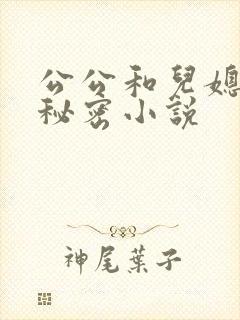 公公和兒媳
秘密小說
神尾葉子